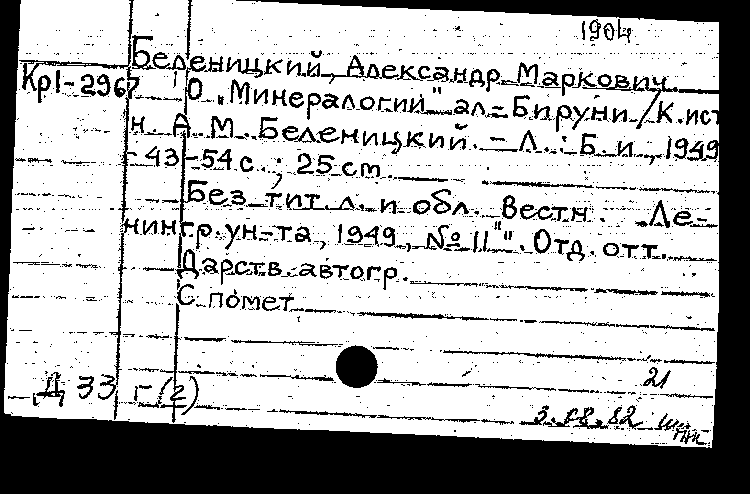 1904
Беленицкий, Александр Маркович
Кр1-2967 О „Минералогии" ал-Бируни / К.ист
н. А.М. Беленицкий. – Л.: Б.и., 1949
- 43-54 с.; 25 cm
Без тит. л. и обл. Вестн. Ле-
нингр. ун-та, 1949, № 11". Отд. отт.
Дарств. автогр.
С помет
21
Д 33 г (2)
3. 82